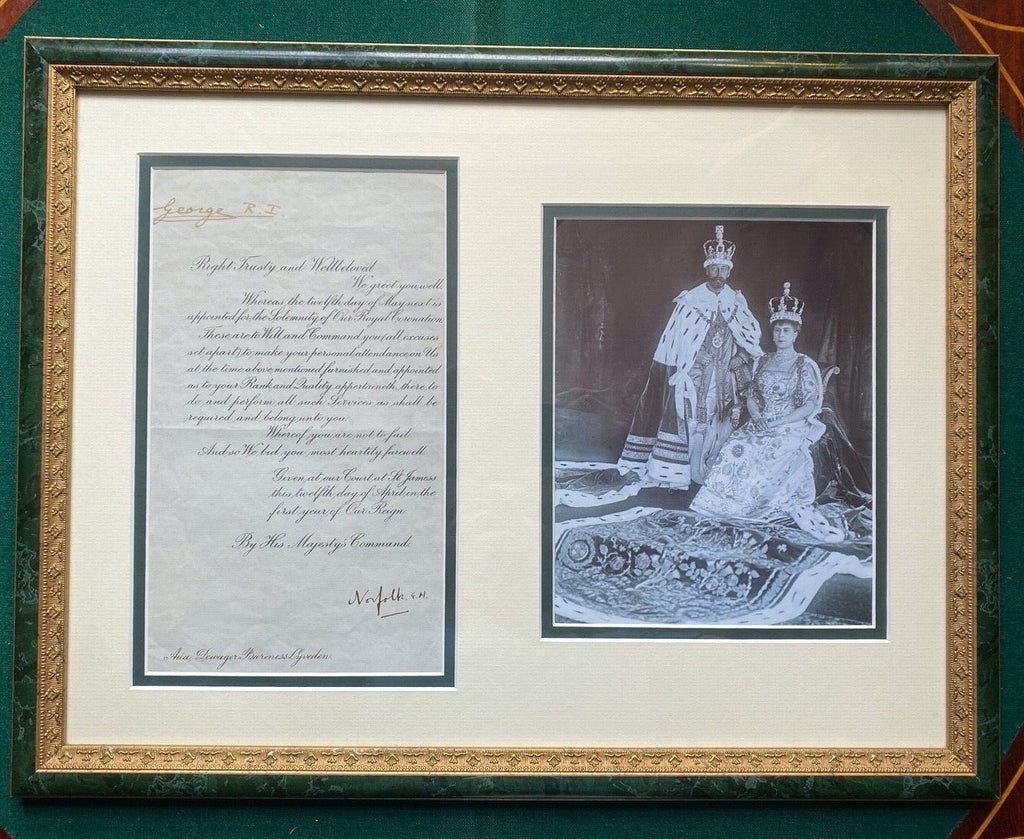 George R.I
Right Trusty and Wellbeloved
We greet you well
Whereas the twelfth day of May next is
appointed for the Solemnity of Our Royal Coronation.
These are to Will and Command you (all excuses
set apart) to make your personal attendance on Us
at the time above mentioned furnished and appointed
as to your Rank and Quality appertaineth, there to
do and perform all such Services as shall be
required and belong unto you.
Whereof you are not to fail
And so We bid you most heartily farewell
Given at our Court at St James's
this twelfth day of April in the
first year of Our Reign
By His Majesty's Command.
Norfolk. E.M.
Dowager Baroness Lyveden